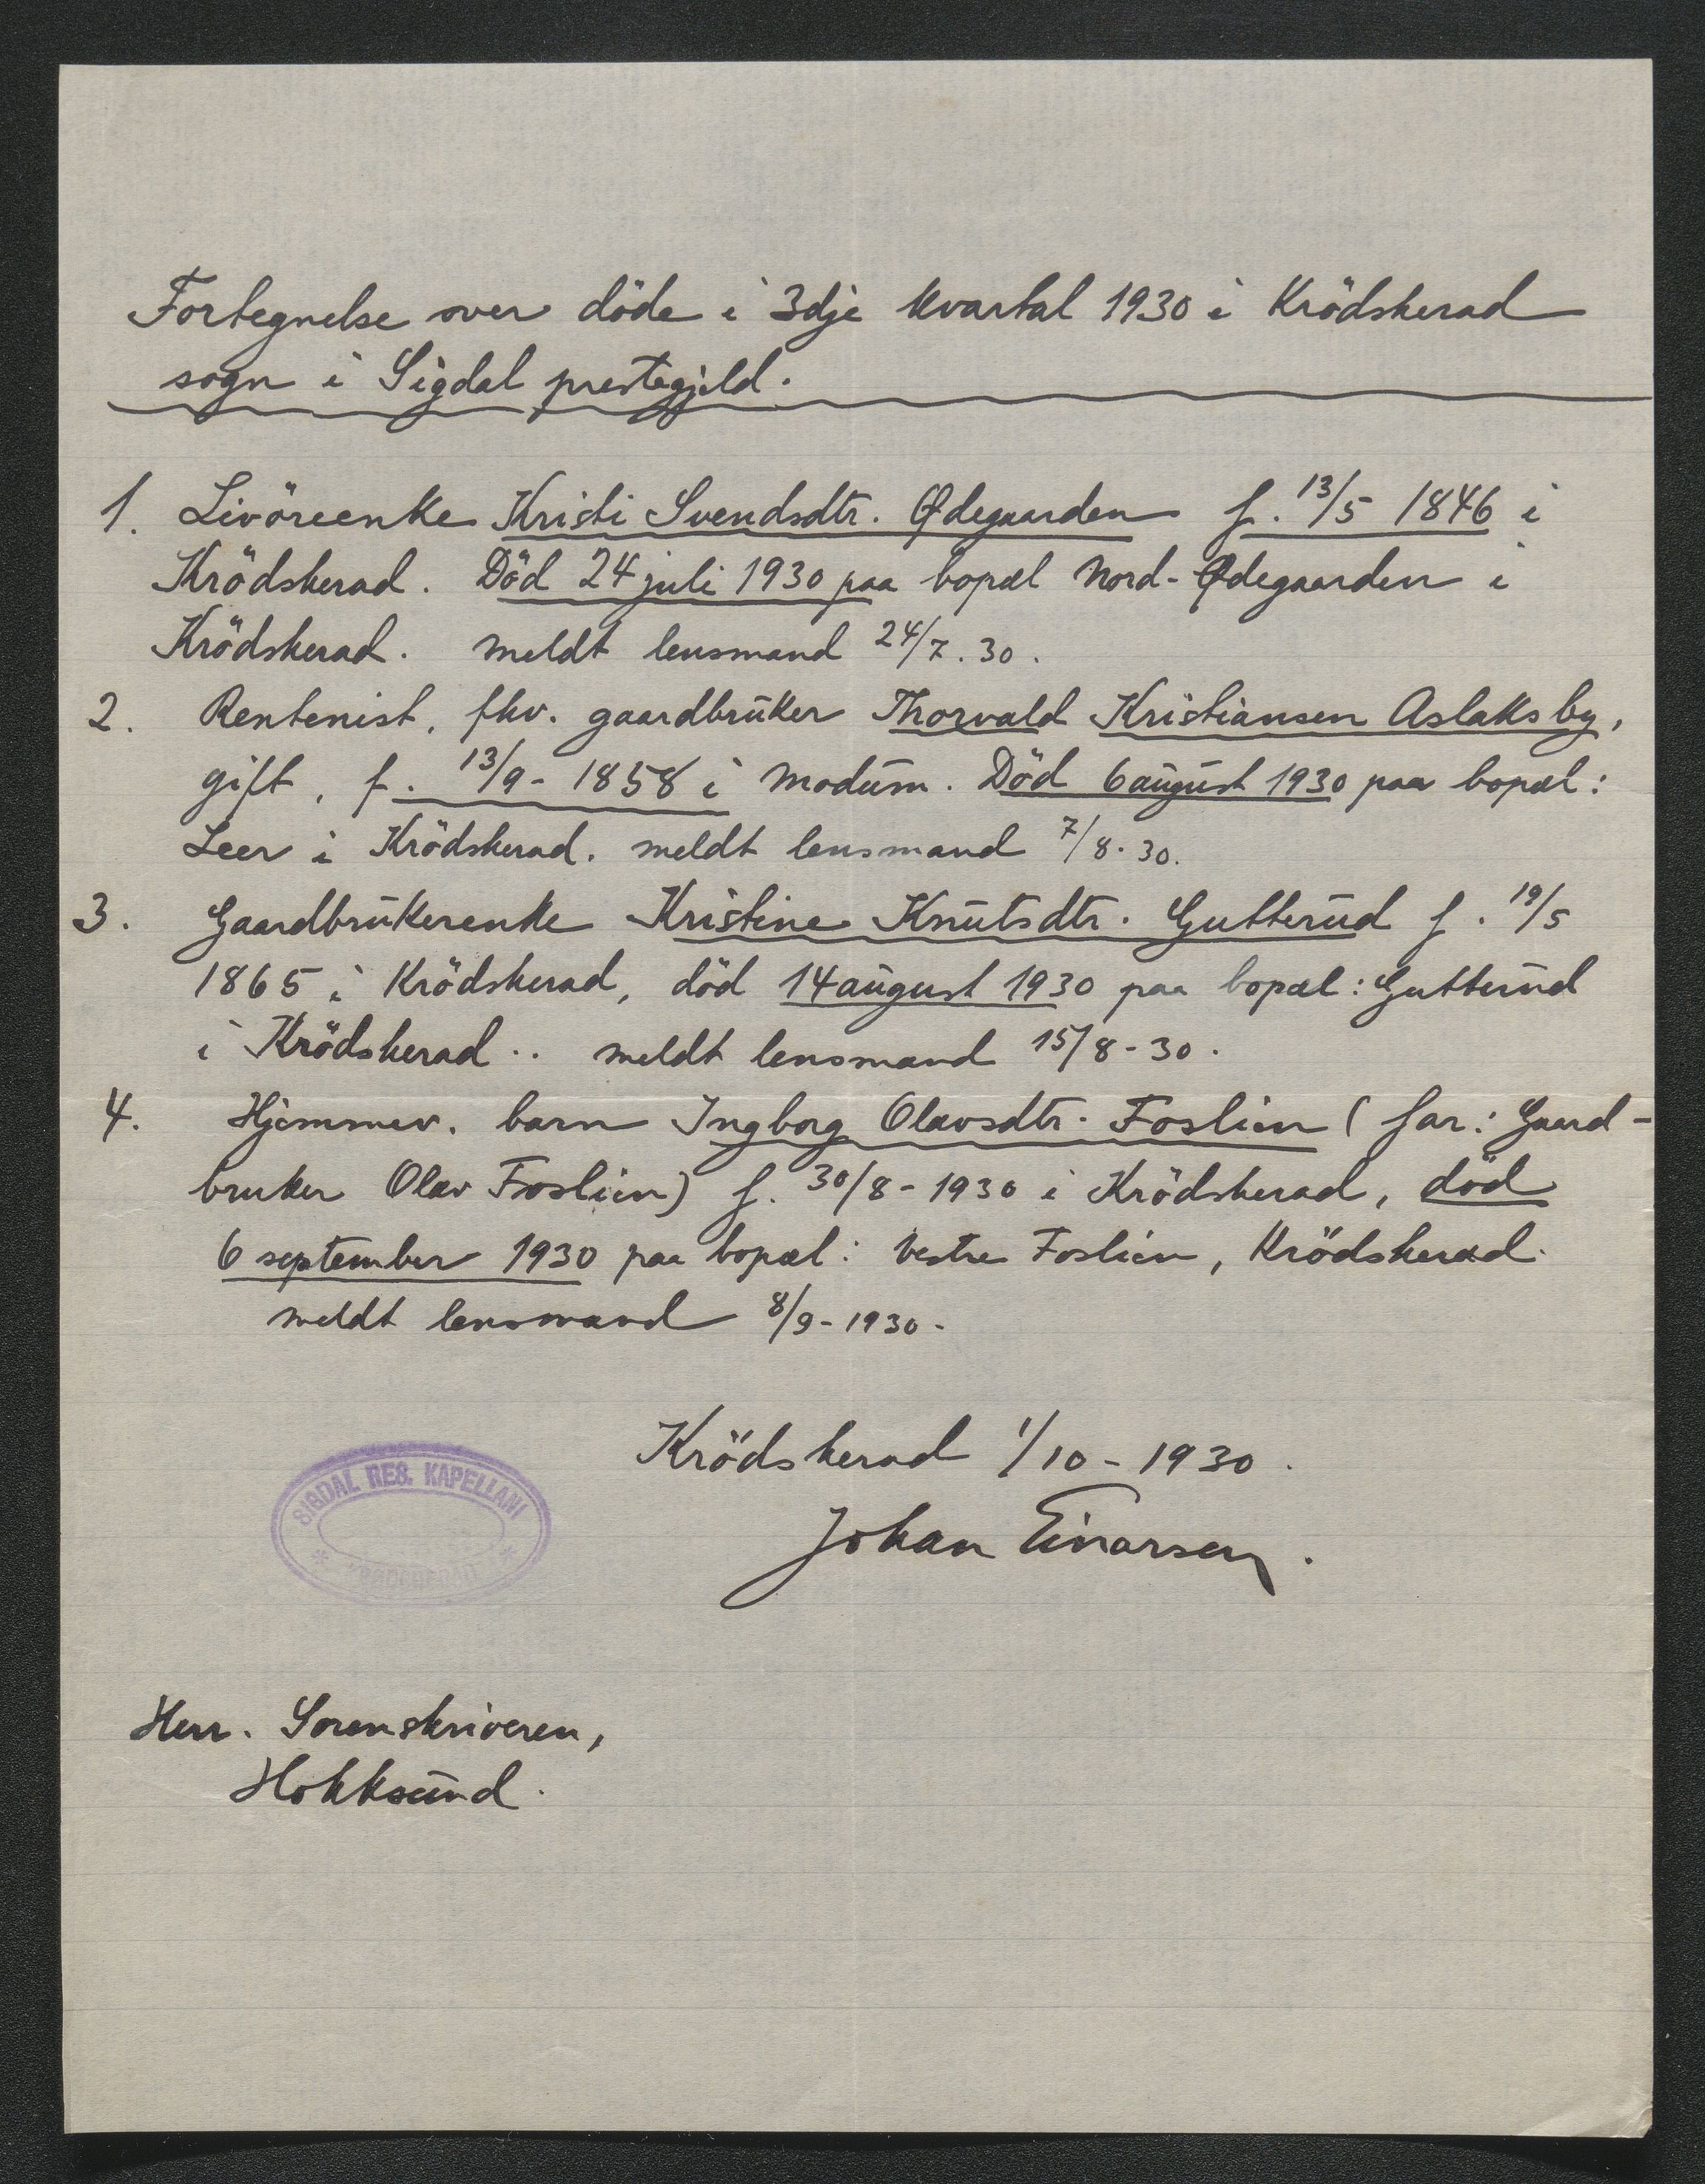 Fortegnelse over döde i 3dje kvartal 1930 i Krödsherad
sogn i Sigdal prestegjeld.
1. Livöreenke Kristi Svendsdtr. Ødegaarden f. 13/5 1846 i
Krödsherad. Död 24 juli 1930 paa bopæl Nord-Ødegaarden i
Krödsherad. meldt lensmand 24/7. 30.
2. Rentenist, fhv. gaardbruker Thorvald Kristiansen Aslaksby,
gift, f. 13/9 - 1858 i Modum. Död 6 august 1930 paa bopæl:
Leer i Krödsherad. meldt lensmand 7/8. 30.
3. Gaardbrukerenke Kristine Knutsdtr. Gutterud f. 19/5
1865 i Krödsherad, död 14 august 1930 paa bopæl: Gutterud
i Krödsherad.. meldt lensmand 15/8 - 30.
4. Hjemmev. barn Ingborg Olavsdtr. Foslien (far: Gaard-
bruker Olav Foslien) f. 30/8 - 1930 i Krödsherad, död
6 september 1930 paa bopæl: Vestre Foslien, Krödsherad.
meldt lensmand 8/9 - 1930 -
Krödsherad 1/10 - 1930.
Johan Einarsen.
SIGDAL RES. KAPELLANI
* KRØDSHERAD *
Herr. Sorenskriveren,
Hokksund.